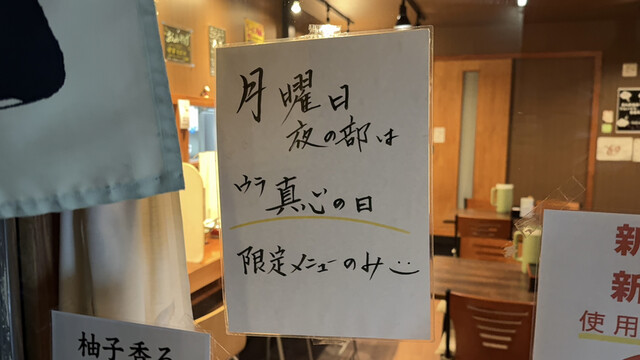 月曜日
夜の部は
ウラ真心の日
限定メニューのみ
柚子香る
新
新
使用